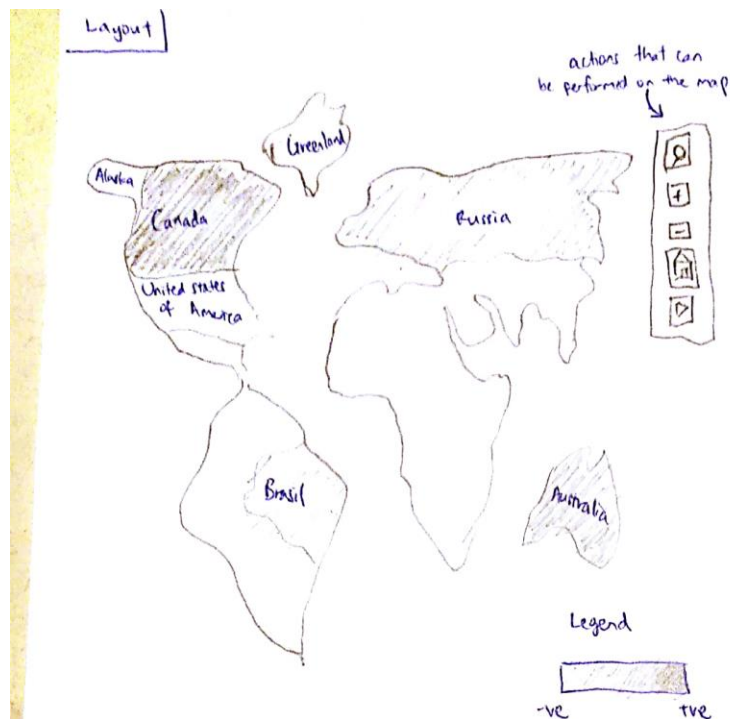 Layout
actions that can
be performed on the map
Greenland
Alaska
Canada
Russia
+
-
United states
of America
Brasil
Australia
Legend
-ve
+ve